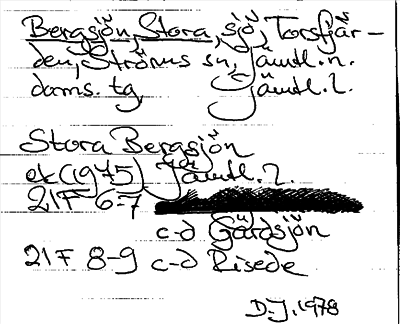 Bergsjön, Stora, sjö, Torsfjär-
den, Ströms sn, Jämtl. n.
doms. tg, Jämtl. l.
Stora Bergsjön
ek (1975) Jämtl. l.
21F 6-7
c-d Gärdsjön
21F 8-9 c-d Risede
D.J. 1978